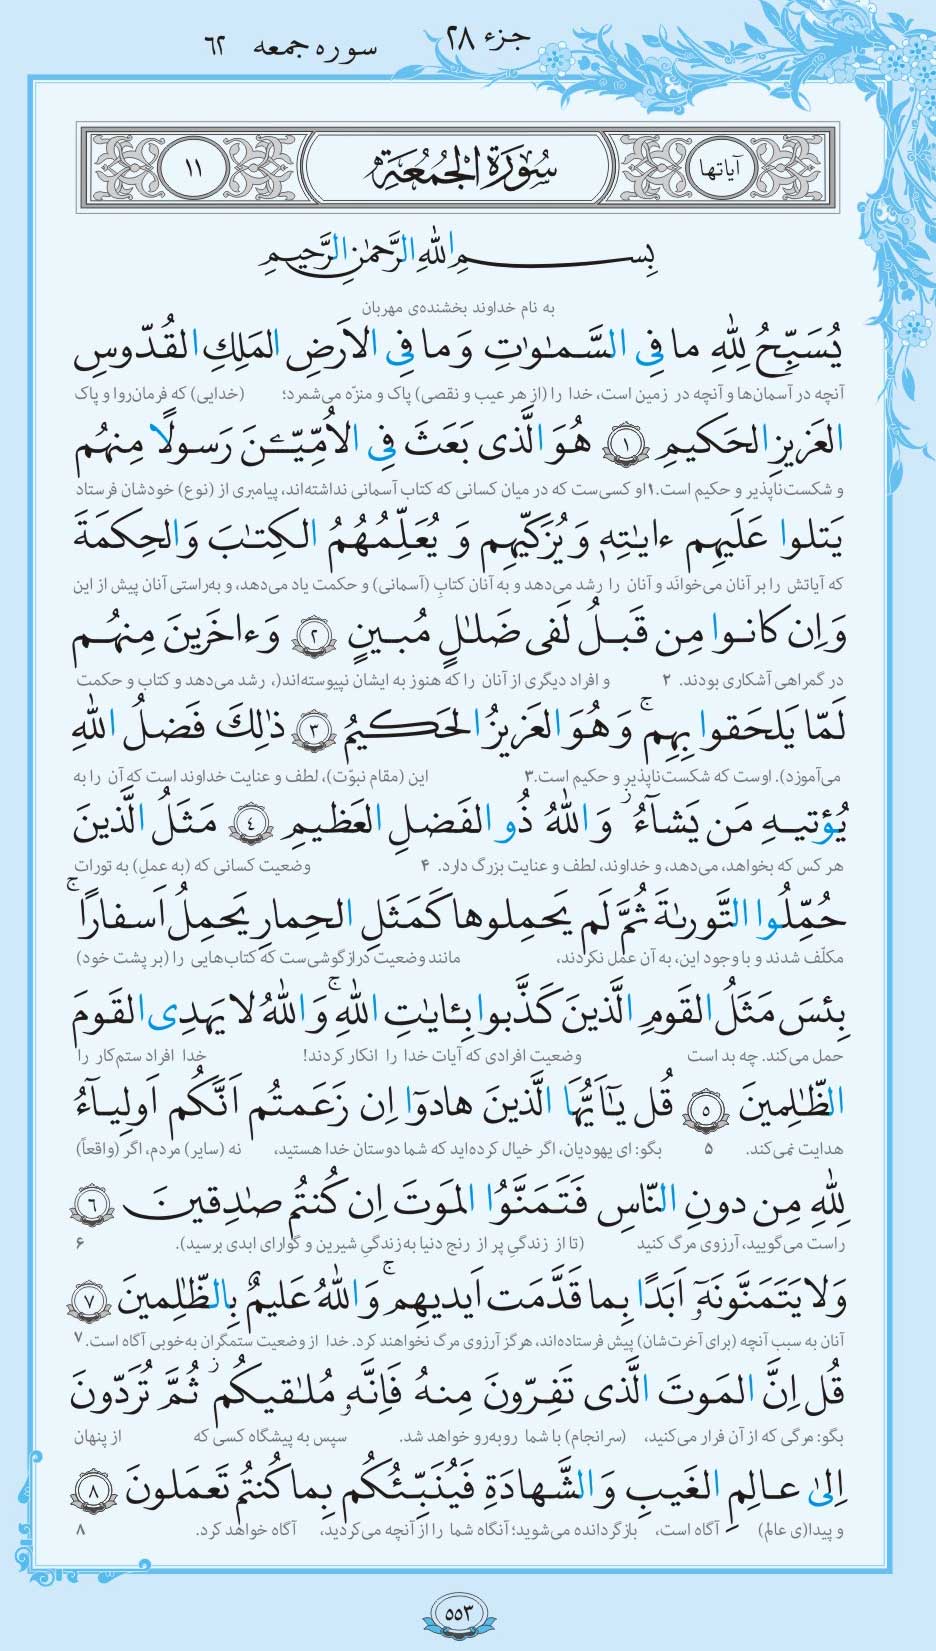 جزء ۲۸
سوره جمعه ۶۲
آیاتها
سُورَةُ الْجُمُعَةِ
۱۱
بِسمِ اللّٰهِ الرَّحمٰنِ الرَّحیمِ
به نام خداوند بخشنده‌ی مهربان
یُسَبِّحُ لِلّٰهِ ما فِی السَّمٰوٰتِ وَ ما فِی الاَرضِ المَلِكِ القُدّوسِ
آنچه در آسمان‌ها و آنچه در زمین است، خدا را (از هر عیب و نقصی) پاک و منزّه می‌شمرد؛ (خدایی) که فرمان‌روا و پاک
العَزیزِ الحَکیمِ ﴿۱﴾ هُوَ الَّذی بَعَثَ فِی الاُمِّیّـۧنَ رَسولًا مِنهُم
و شکست‌ناپذیر و حکیم است.۱ او کسی‌ست که در میان کسانی که کتاب آسمانی نداشته‌اند، پیامبری از (نوع) خودشان فرستاد
یَتلوا عَلَیهِم ءایٰتِهٖ وَ یُزَکّیهِم وَ یُعَلِّمُهُمُ الكِتٰبَ وَ الحِکمَةَ
که آیاتش را بر آنان می‌خواند و آنان را رشد می‌دهد و به آنان کتابِ (آسمانی) و حکمت یاد می‌دهد، و به‌راستی آنان پیش از این
وَ اِن کانوا مِن قَبلُ لَفی ضَلٰلٍ مُبینٍ ﴿۲﴾ وَ ءاخَرینَ مِنهُم
در گمراهی آشکاری بودند. ۲ و افراد دیگری از آنان را که هنوز به ایشان نپیوسته‌اند(، رشد می‌دهد و کتاب و حکمت
لَمّا یَلحَقوا بِهِم ۚ وَ هُوَ العَزیزُ الحَکیمُ ﴿۳﴾ ذٰلِكَ فَضلُ اللّٰهِ
می‌آموزد). اوست که شکست‌ناپذیر و حکیم است.۳ این (مقام نبوّت)، لطف و عنایت خداوند است که آن را به
یُؤتیهِ مَن یَشآءُ ۚ وَ اللّٰهُ ذُو الفَضلِ العَظیمِ ﴿۴﴾ مَثَلُ الَّذینَ
هر کس که بخواهد، می‌دهد، و خداوند، لطف و عنایت بزرگ دارد. ۴ وضعیت کسانی که (به عملِ) به تورات
حُمِّلُوا التَّورىٰةَ ثُمَّ لَم یَحمِلوها كَمَثَلِ الحِمارِ یَحمِلُ اَسفارًا ۚ
مکلّف شدند و با وجود این، به آن عمل نکردند، مانند وضعیت درازگوشی‌ست که کتاب‌هایی را (بر پشت خود)
بِئسَ مَثَلُ القَومِ الَّذینَ كَذَّبوا بِـٔایٰتِ اللّٰهِ ۚ وَ اللّٰهُ لا یَهدِی القَومَ
حمل می‌کند. چه بد است وضعیت افرادی که آیات خدا را انکار کردند! خدا افراد ستم‌کار را
الظّٰلِمینَ ﴿۵﴾ قُل یٰٓاَیُّهَا الَّذینَ هادوٓا اِن زَعَمتُم اَنَّكُم اَولِیآءُ
هدایت نمی‌کند. ۵ بگو: ای یهودیان، اگر خیال کرده‌اید که شما دوستان خدا هستید، نه (سایر) مردم، اگر (واقعاً)
لِلّٰهِ مِن دونِ النّاسِ فَتَمَنَّوُا المَوتَ اِن كُنتُم صٰدِقینَ ﴿۶﴾
راست می‌گویید، آرزوی مرگ کنید (تا از زندگیِ پر از رنج دنیا به زندگیِ شیرین و گوارای ابدی برسید). ۶
وَ لا یَتَمَنَّونَهٗٓ اَبَدًا بِما قَدَّمَت اَیدیهِم ۚ وَ اللّٰهُ عَلیمٌ بِالظّٰلِمینَ ﴿۷﴾
آنان به سبب آنچه (برای آخرت‌شان) پیش فرستاده‌اند، هرگز آرزوی مرگ نخواهند کرد. خدا از وضعیت ستمگران به‌خوبی آگاه است. ۷
قُل اِنَّ المَوتَ الَّذی تَفِرّونَ مِنهُ فَاِنَّهٗ مُلٰقیكُم ۖ ثُمَّ تُرَدّونَ
بگو: مرگی که از آن فرار می‌کنید، (سرانجام) با شما روبه‌رو خواهد شد. سپس به پیشگاه کسی که از پنهان
اِلىٰ عالِمِ الغَیبِ وَ الشَّهادَةِ فَیُنَبِّئُكُم بِما كُنتُم تَعمَلونَ ﴿۸﴾
و پیدا(ی عالم) آگاه است، بازگردانده می‌شوید؛ آنگاه شما را از آنچه می‌کردید، آگاه خواهد کرد. ۸
۵۵۳